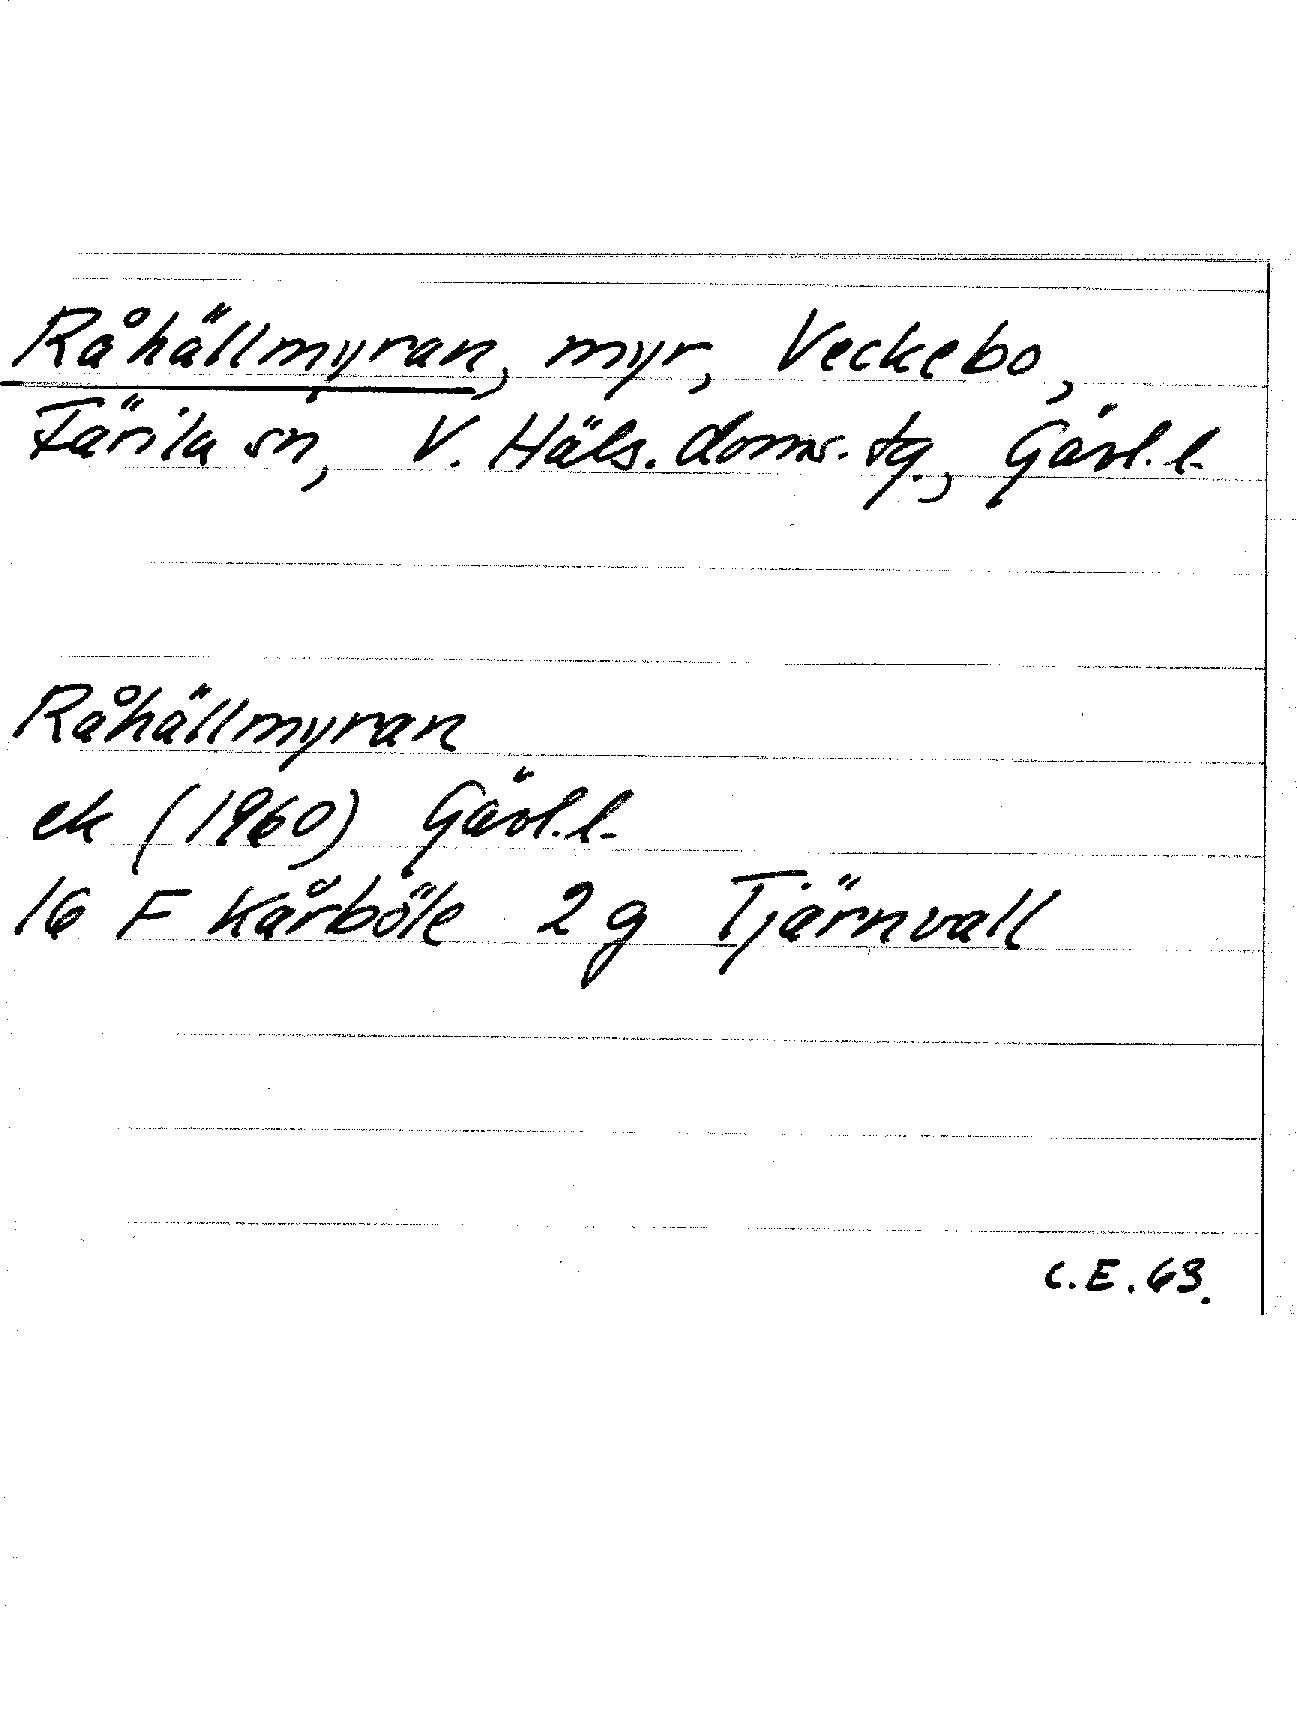 Råhällmyran, myr, Veckebo,
Färila sn, V. Häls. doms. tg., Gävl. l.
Råhällmyran
ek (1960) Gävl. l.
16 F Kårböle 2 g Tjärnvall
C.E. 63.